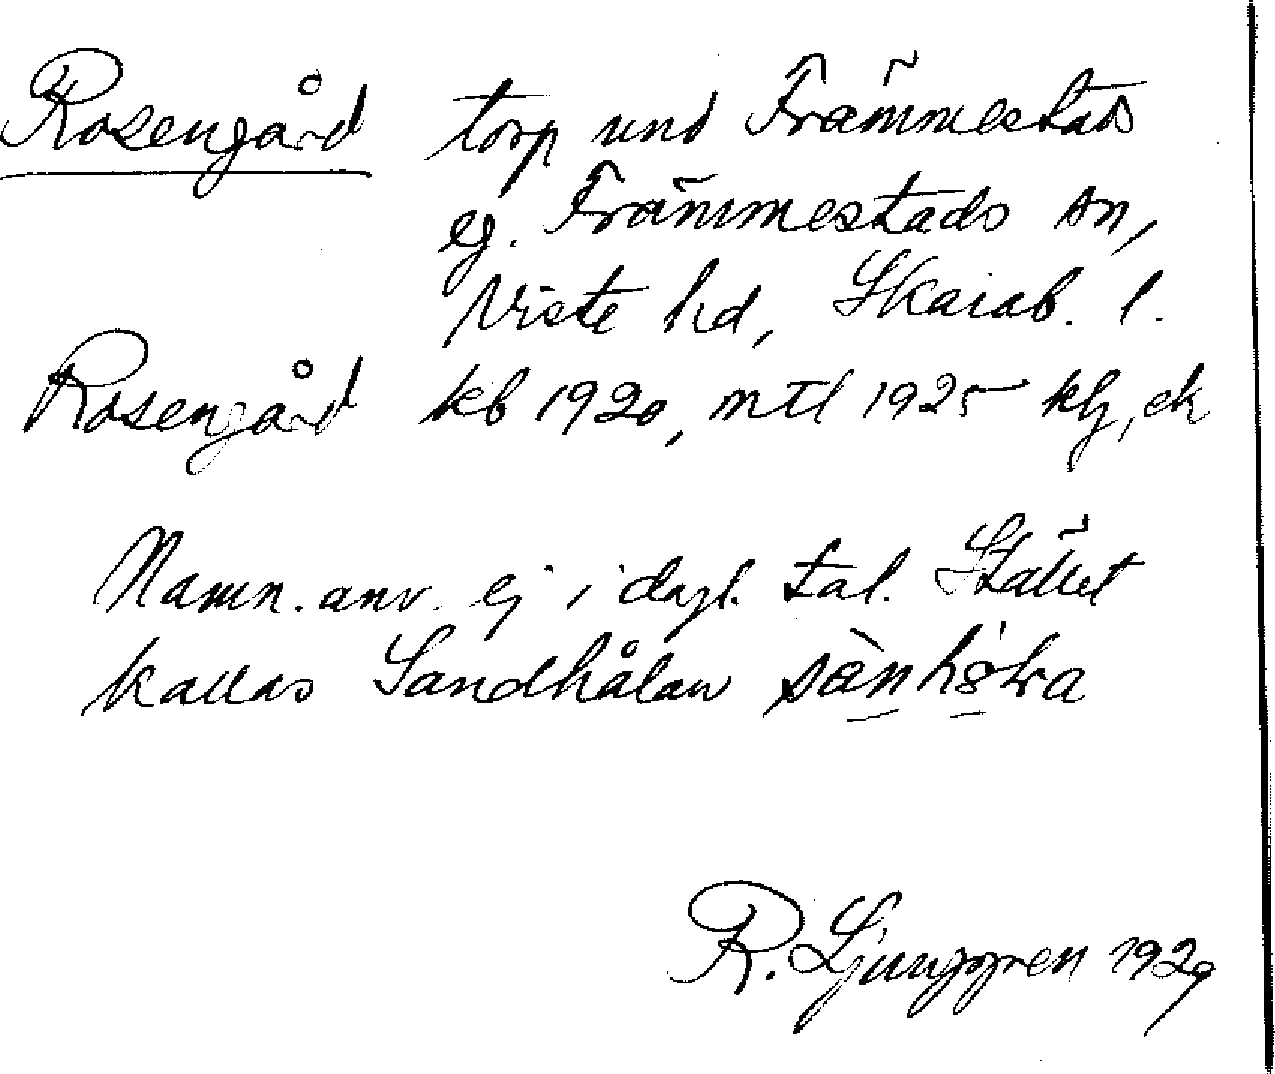 Rosengård torp und Främmestads
eg. Främmestads sn,
Viste hd, Skarab. l.
Rosengård kb 1920, mtl 1925
Namn. anv. ej i dagl. tal. Stället
kallas Sandhålan
R. Ljunggren 1929